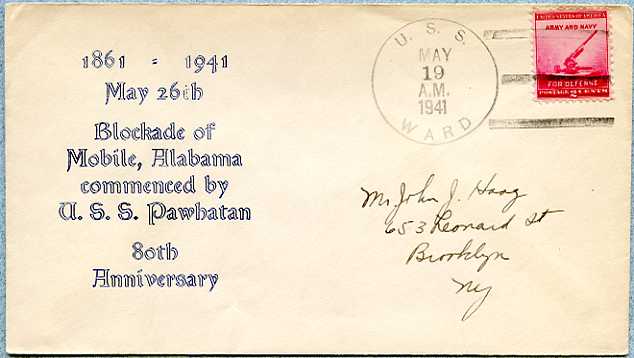 1861 - 1941
May 26th
Blockade of
Mobile, Alabama
commenced by
U. S. S. Pawhatan
80th
Anniversary
U. S. S.
MAY
19
A.M.
1941
WARD
UNITED STATES OF AMERICA
ARMY AND NAVY
FOR DEFENSE
POSTAGE 2 CENTS
Mr John J. Haag
653 Leonard St
Brooklyn
NY